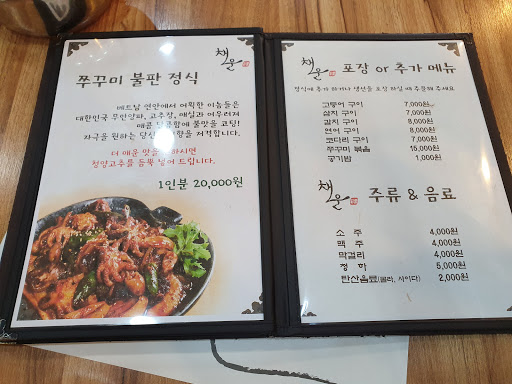 채울
쭈꾸미 불판 정식
베트남 연안에서 어획한 이놈들은
대한민국 무안양파, 고추장, 매실과 어우러져
매콤 함에 불맛을 코팅!
자극을 원하는 당신 향을 저격합니다.
더 매운 맛을 하시면
청양고추를 듬뿍 넣어 드립니다.
1인분 20,000원
채울 포장 or 추가 메뉴
정식에 추가 하거나 생선을 포장 하실 때 주문해 주세요
고등어 구이 7,000원
삼치 구이 7,000원
갈치 구이 8,000원
연어 구이 8,000원
코다리 구이 7,000원
쭈꾸미 볶음 15,000원
공기밥 1,000원
채울 주류 & 음료
소 주 4,000원
맥 주 4,000원
막걸리 4,000원
청 하 5,000원
탄산음료(콜라, 사이다) 2,000원